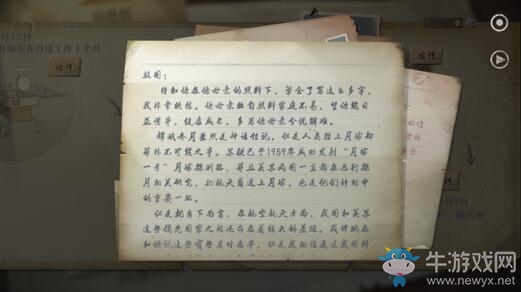 15日
月球车在月球工作十个月
信件
信件
0
振国：
得知你在你母亲的照料下，学会了写这么多字，
我非常欣慰。你母亲独自照料家庭不易，望你能日
益懂事，健康成长，多为你母亲分忧解难。
嫦娥奔月虽然是神话传说，但是人类踏上月球却
并非不可能之事。苏联已于1959年成功发射“月球
一号”月球探测器，并且美苏两国一直都在进行探
月相关研究，把航天员送上月球，也是他们计划中
的重要一环。
但是就当下而言，在航空航天方面，我国和美苏
这些领先国家之间还存在着较大的差距，或许现在
和你说这些有些为时尚早，但是我相信通过我国科
牛游戏网
www.newyx.net